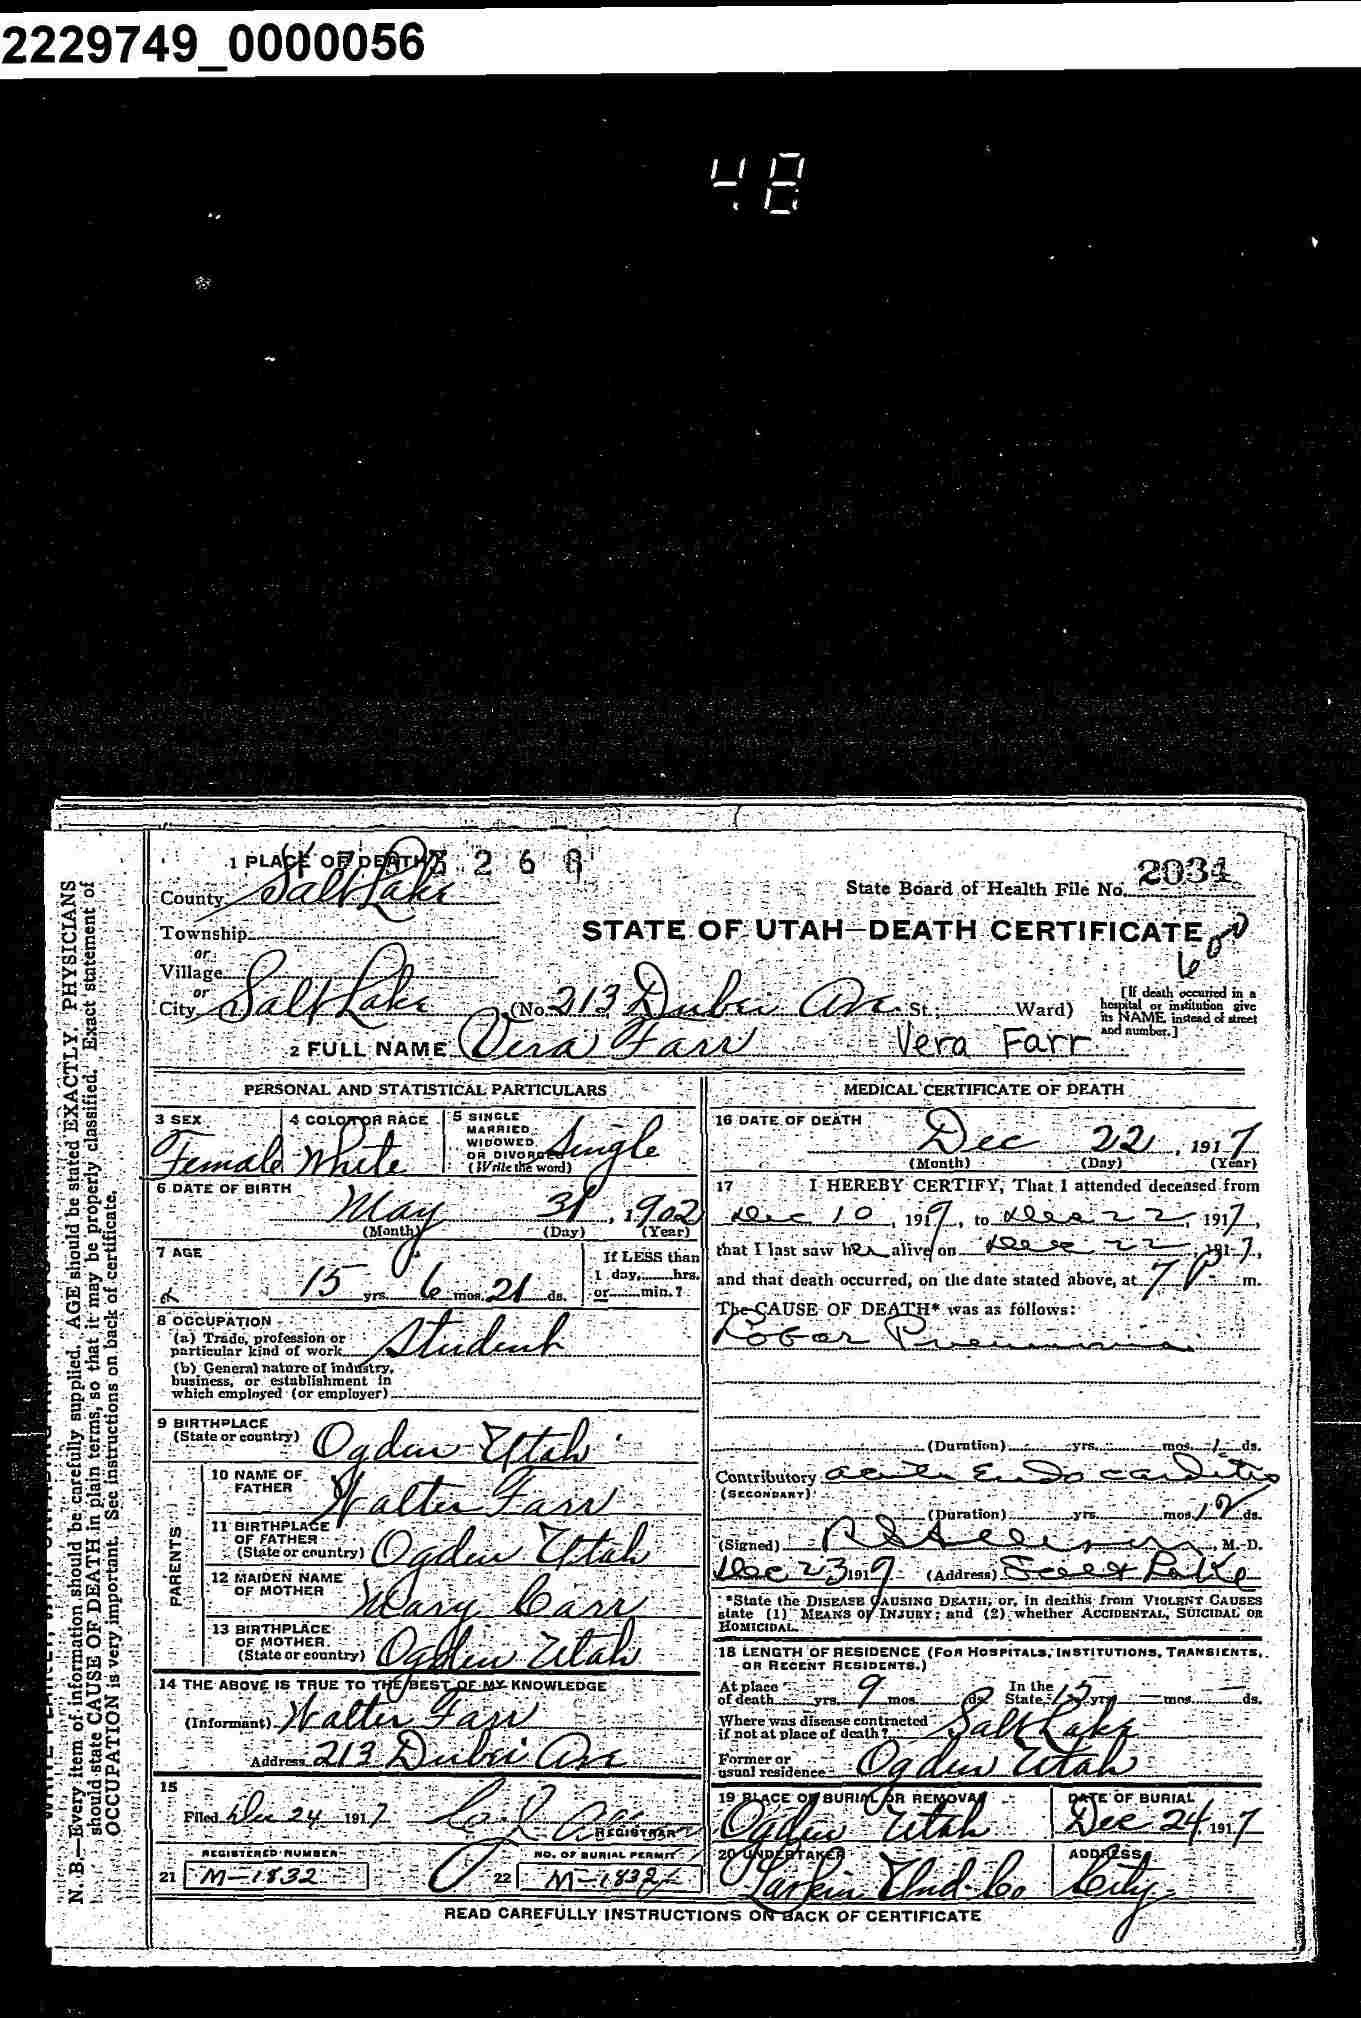 2229749_0000056
48
1 PLACE OF DEATH
State Board of Health File No. 2034
County Salt Lake
STATE OF UTAH—DEATH CERTIFICATE
Township
or
Village
or
City Salt Lake (No. 213 Dubei Ave St.; Ward)
[If death occurred in a hospital or institution give its NAME instead of street and number.]
2 FULL NAME Vera Farr Vera Farr
PERSONAL AND STATISTICAL PARTICULARS
3 SEX Female
4 COLOR OR RACE White
5 SINGLE MARRIED WIDOWED OR DIVORCED (Write the word) Single
6 DATE OF BIRTH May 31, 1902
(Month) (Day) (Year)
7 AGE 15 yrs. 6 mos. 21 ds.
If LESS than 1 day, hrs. or min.?
8 OCCUPATION
(a) Trade, profession or particular kind of work Student
(b) General nature of industry, business, or establishment in which employed (or employer)
9 BIRTHPLACE (State or country) Ogden Utah
PARENTS
10 NAME OF FATHER Walter Farr
11 BIRTHPLACE OF FATHER (State or country) Ogden Utah
12 MAIDEN NAME OF MOTHER Mary Carr
13 BIRTHPLACE OF MOTHER (State or country) Ogden Utah
14 THE ABOVE IS TRUE TO THE BEST OF MY KNOWLEDGE
(Informant) Walter Farr
Address 213 Dubei Ave
15
Filed Dec 24 1917
REGISTRAR
REGISTERED NUMBER
21 M-1832
NO. OF BURIAL PERMIT
22 M-1832
MEDICAL CERTIFICATE OF DEATH
16 DATE OF DEATH Dec 22, 1917
(Month) (Day) (Year)
17 I HEREBY CERTIFY, That I attended deceased from
Dec 10, 1917, to Dec 22, 1917,
that I last saw her alive on Dec 22, 1917,
and that death occurred, on the date stated above, at 7 P. m.
The CAUSE OF DEATH* was as follows:
Lobar Pneumonia
(Duration) yrs. mos. 1 ds.
Contributory acute Endocarditis
(SECONDARY)
(Duration) yrs. mos. 12 ds.
(Signed) M. D.
Dec 23 1917 (Address) Salt Lake
*State the DISEASE CAUSING DEATH, or, in deaths from VIOLENT CAUSES
state (1) MEANS OF INJURY; and (2) whether ACCIDENTAL, SUICIDAL OR
HOMICIDAL.
18 LENGTH OF RESIDENCE (FOR HOSPITALS, INSTITUTIONS, TRANSIENTS,
OR RECENT RESIDENTS.)
At place of death yrs. 9 mos. ds. In the State 15 yrs mos. ds.
Where was disease contracted if not at place of death? Salt Lake
Former or usual residence Ogden Utah
19 PLACE OF BURIAL OR REMOVAL Ogden Utah
DATE OF BURIAL Dec 24 1917
20 UNDERTAKER Larkin Und. Co
ADDRESS City
READ CAREFULLY INSTRUCTIONS ON BACK OF CERTIFICATE
N. B.—Every item of information should be carefully supplied. AGE should be stated EXACTLY. PHYSICIANS
should state CAUSE OF DEATH in plain terms, so that it may be properly classified. Exact statement of
OCCUPATION is very important. See instructions on back of certificate.